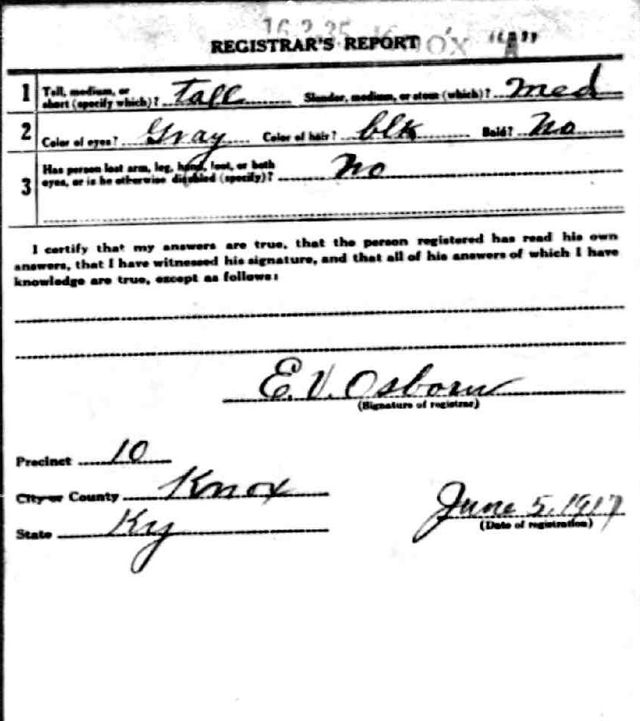 16-2-35 KNOX "A"
REGISTRAR'S REPORT
1 Tall, medium, or short (specify which)? Tall Slender, medium, or stout (which)? Med
2 Color of eyes? Gray Color of hair? blk Bald? No
3 Has person lost arm, leg, hand, foot, or both
eyes, or is he otherwise disabled (specify)? No
I certify that my answers are true, that the person registered has read his own
answers, that I have witnessed his signature, and that all of his answers of which I have
knowledge are true, except as follows:
E. V. Osborn
(Signature of registrar)
Precinct 10
City or County Knox
State Ky
June 5, 1917
(Date of registration)